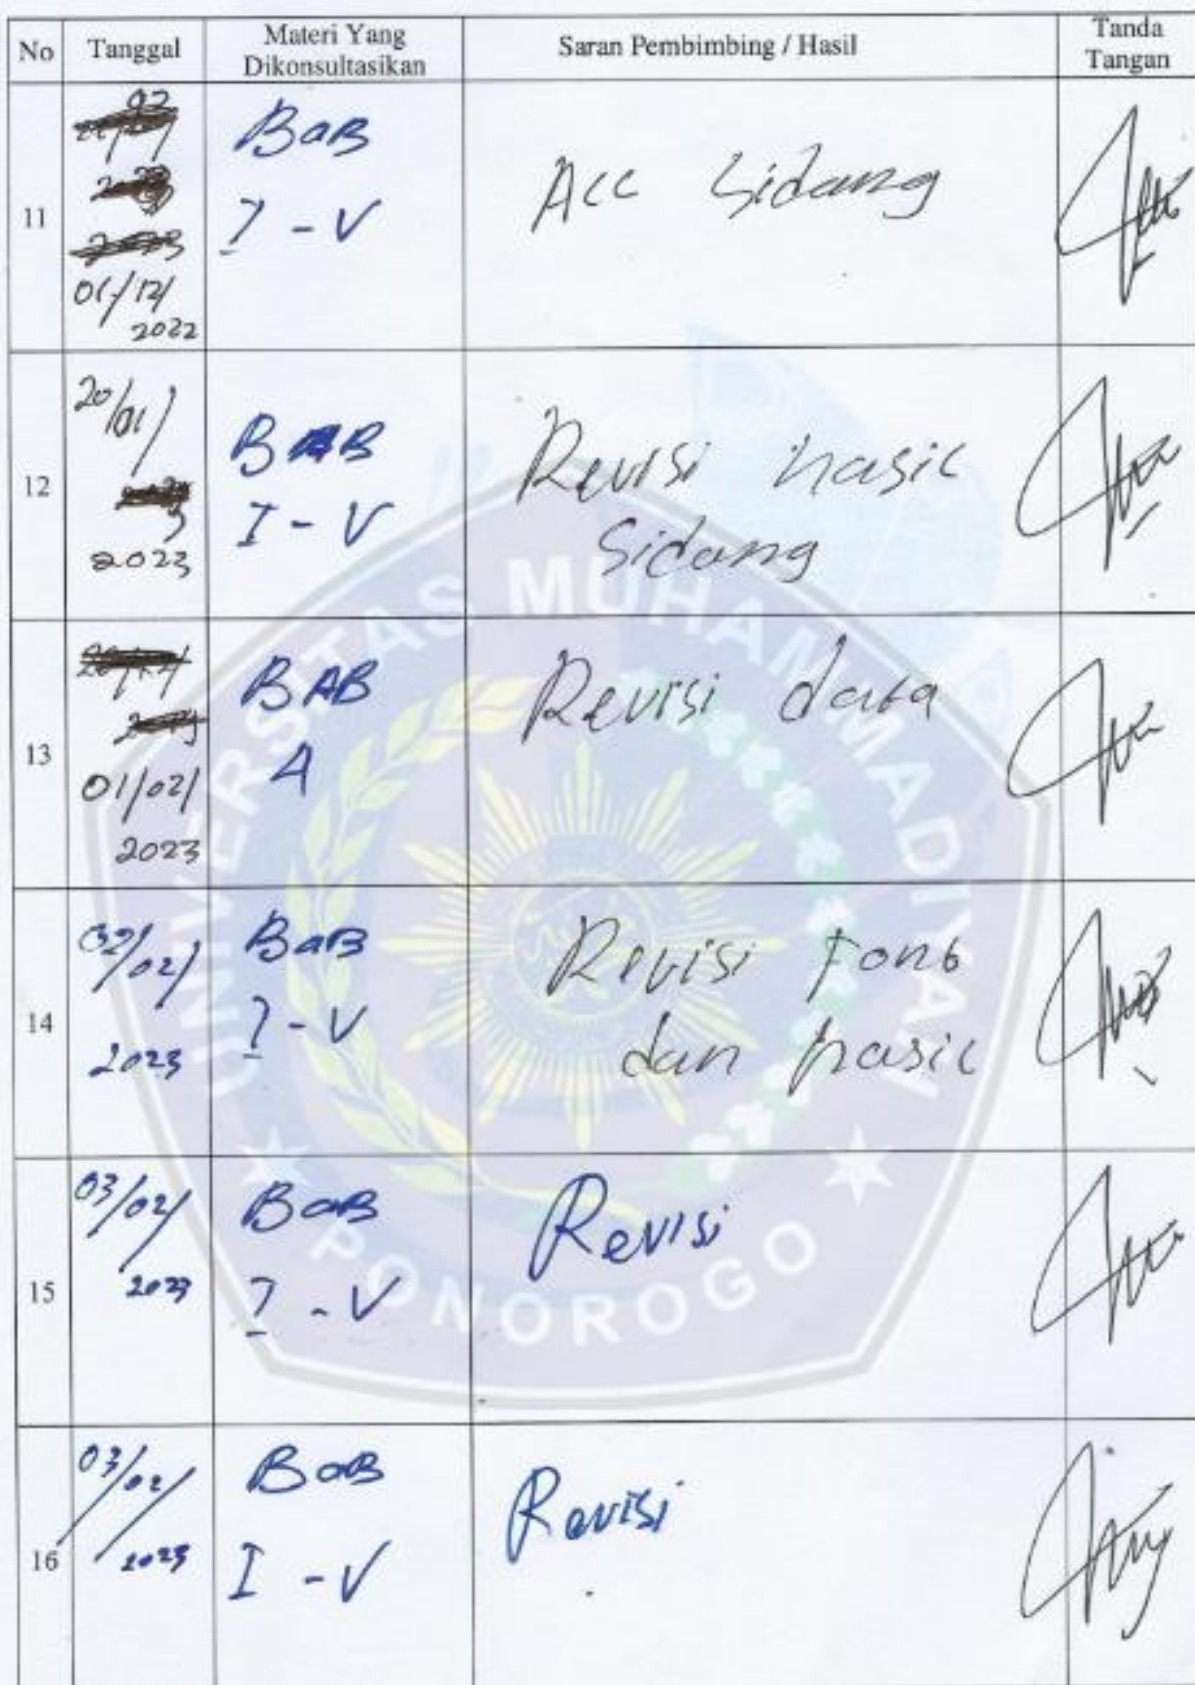 No Tanggal Materi Yang Dikonsultasikan Saran Pembimbing / Hasil Tanda Tangan
11
01/12/
2022
BaB
I - V
Acc Sidang
12
20/01/
2023
BAB
I - V
Revisi hasil
Sidang
13
01/02/
2023
BAB
4
Revisi data
14
02/02/
2023
BaB
I - V
Revisi Font
dan hasil
15
03/02/
2023
BaB
I - V
Revisi
16
03/02/
2023
BaB
I - V
Revisi
UNIVERSITAS MUHAMMADIYAH
PONOROGO